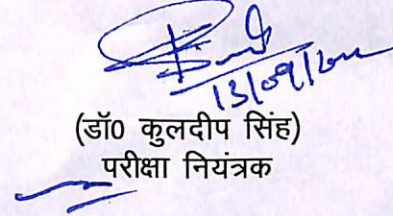 13/09/
(डॉ0 कुलदीप सिंह)
परीक्षा नियंत्रक